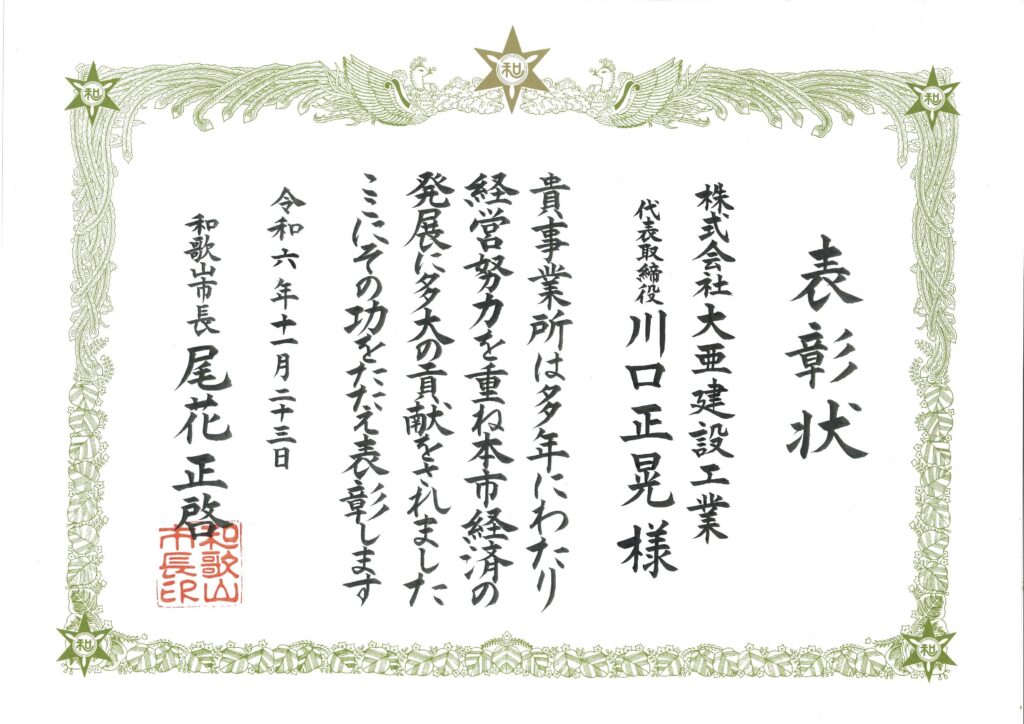 表彰状
株式会社大亜建設工業
代表取締役 川口正晃様
貴事業所は多年にわたり
経営努力を重ね本市経済の
発展に多大の貢献をされました
ここにその功をたたえ表彰します
令和六年十一月二十三日
和歌山市長 尾花正啓
和歌山
市長印
和
和
和
和
和